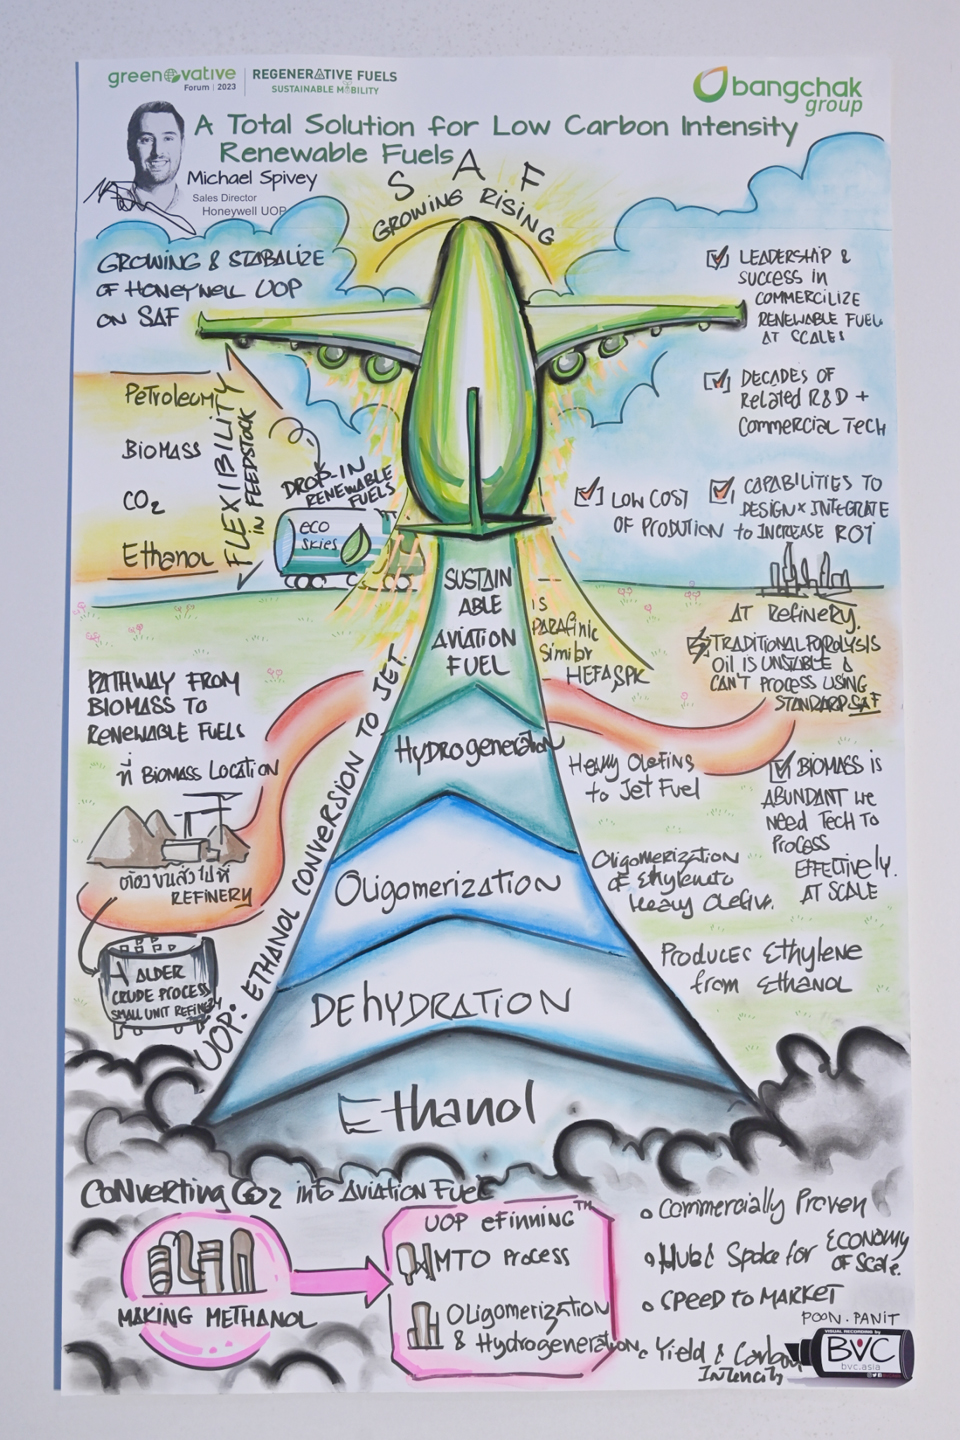 greenovative
Forum | 2023
REGENERATIVE FUELS
SUSTAINABLE MOBILITY
bangchak
group
A Total Solution for Low Carbon Intensity
Renewable Fuels
Michael Spivey
Sales Director
Honeywell UOP
SAF
GROWING RISING
GROWING & STABALIZE
OF HONEYWELL UOP
ON SAF
PETROLEUM
BIOMASS
CO2
Ethanol
FLEXIBILITY
IN FEEDSTOCK
DROP-IN
RENEWABLE
FUELS
eco
skies
LEADERSHIP &
SUCCESS IN
COMMERCILIZE
RENEWABLE FUEL
AT SCALES
DECADES OF
Related R&D +
Commercial Tech
LOW COST
OF PRODUTION
CAPABILITIES TO
DESIGN & INTEGRATE
to INCREASE ROI
AT REFINERY.
TRADITIONAL PYROLYSIS
OIL IS UNSTABLE &
CAN'T PROCESS USING
STANDARD SAF
SUSTAIN
ABLE
AVIATION
FUEL
IS
PARAFINIC
Similar
HEFA SPK
PATHWAY FROM
BIOMASS TO
RENEWABLE FUELS
ที่ BIOMASS LOCATION
ต้องขนส่งไปที่
REFINERY
ALDER
CRUDE PROCESS
SMALL UNIT REFINERY
UOP: ETHANOL CONVERSION TO JET.
Hydrogeneration
Heavy Olefins
to Jet Fuel
BIOMASS IS
ABUNDANT WE
NEED TECH TO
PROCESS
EFFECTIVELY.
AT SCALE
Oligomerization
Oligomerization
OF Ethylene to
Heavy Olefin.
DEHYDRATION
PRODUCES Ethylene
from Ethanol
Ethanol
CONVERTING CO2 into AVIATION FUEL
MAKING METHANOL
UOP eFinning™
MTO PROCESS
OLigomerization
& Hydrogeneration
Commercially Proven
Hub & Spoke for ECONOMY
OF Scale.
SPEED TO MARKET
Yield & Carbon
Intencity
POON.PANIT
VISUAL RECORDING by
BVC
bvc.asia